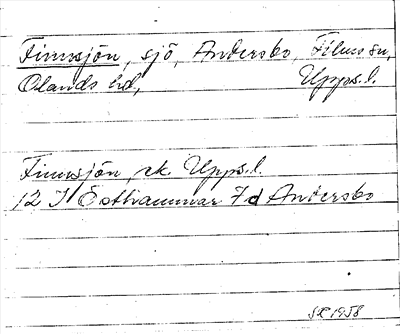 Finnsjön, sjö, Andersbo, Films sn,
Olands hd, Upps.l.
Finnsjön, ek. Upps.l.
12 I Östhammar 7 d Andersbo
1958